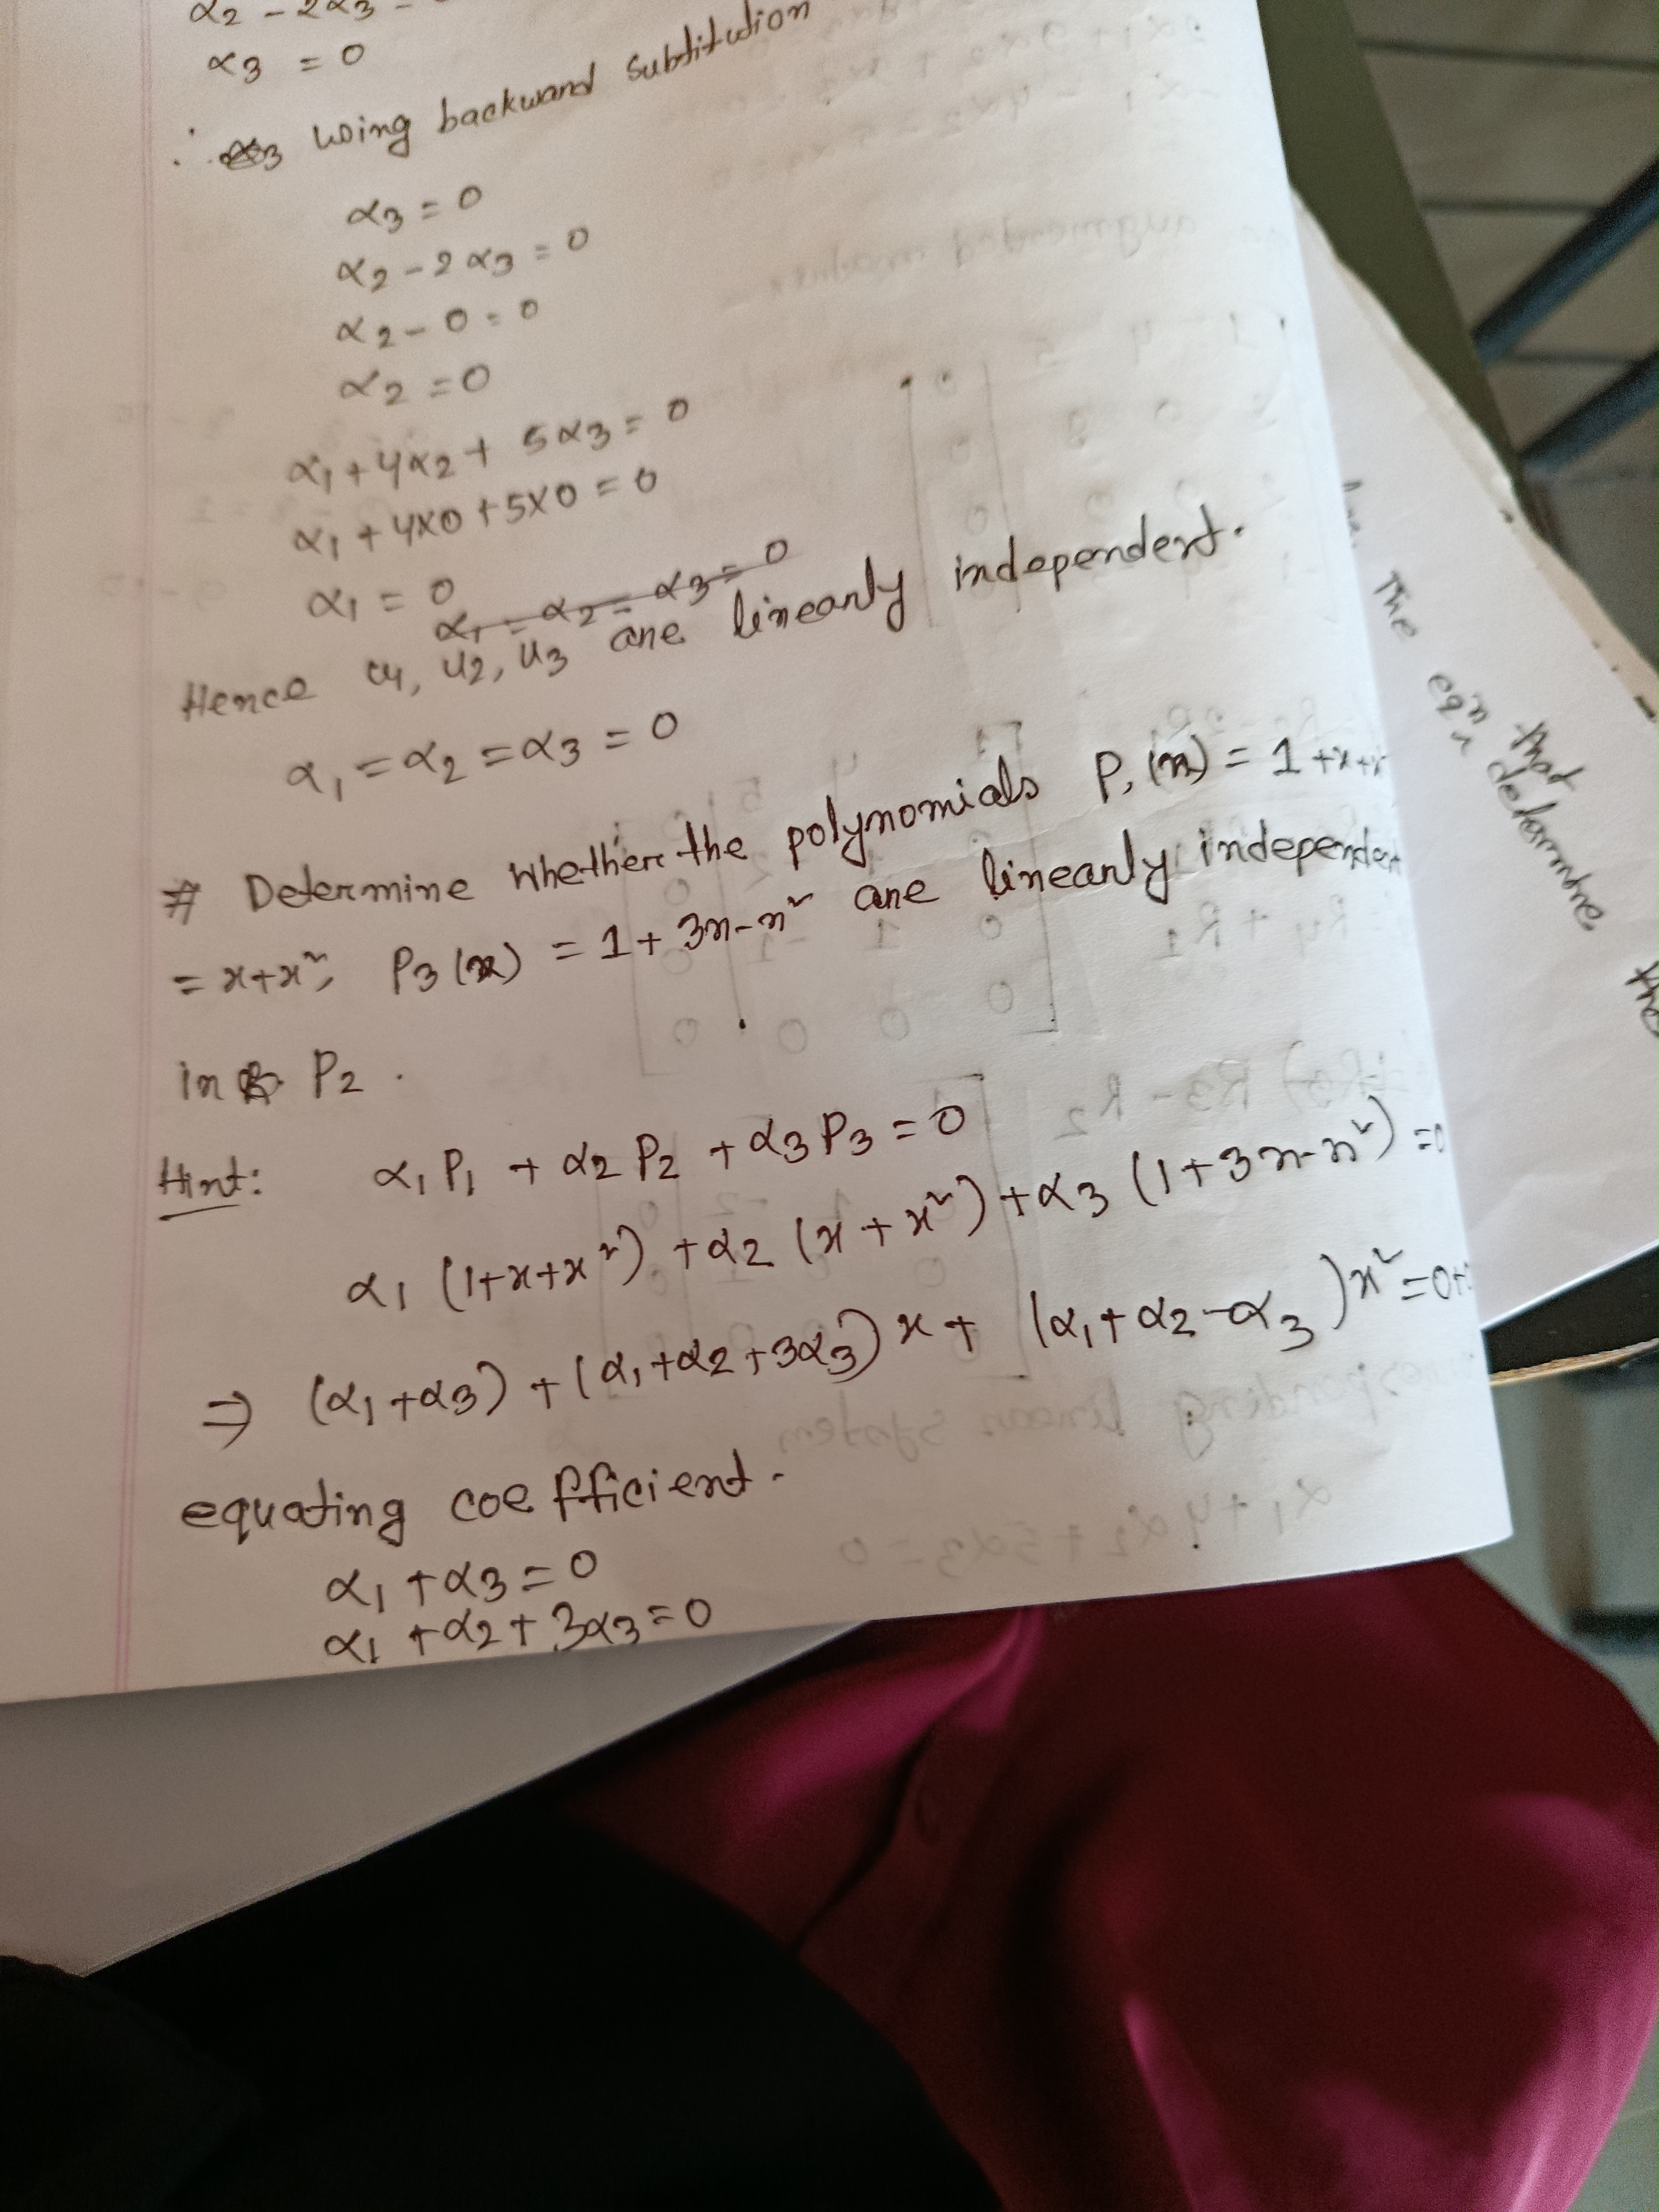 α2 - 2α3 -
α3 = 0
∴ using backward substitution
α3 = 0
α2 - 2α3 = 0
α2 - 0 = 0
α2 = 0
α1 + 4α2 + 5α3 = 0
α1 + 4x0 + 5x0 = 0
α1 = 0
α1 = α2 = α3 = 0
Hence u1, u2, u3 are linearly independent.
α1 = α2 = α3 = 0
# Determine whether the polynomials P1(x) = 1 + x + x²
= x+x², P3(x) = 1 + 3x-x² are linearly independent
in P2.
Hint: α1P1 + α2P2 + α3P3 = 0
α1 (1+x+x²) + α2 (x+x²) + α3 (1+3x-x²) = 0
⇒ (α1+α3) + (α1+α2+3α3)x + (α1+α2-α3)x² = 0+
equating coefficient.
α1 + α3 = 0
α1 + α2 + 3α3 = 0
The eqn
that determine
the